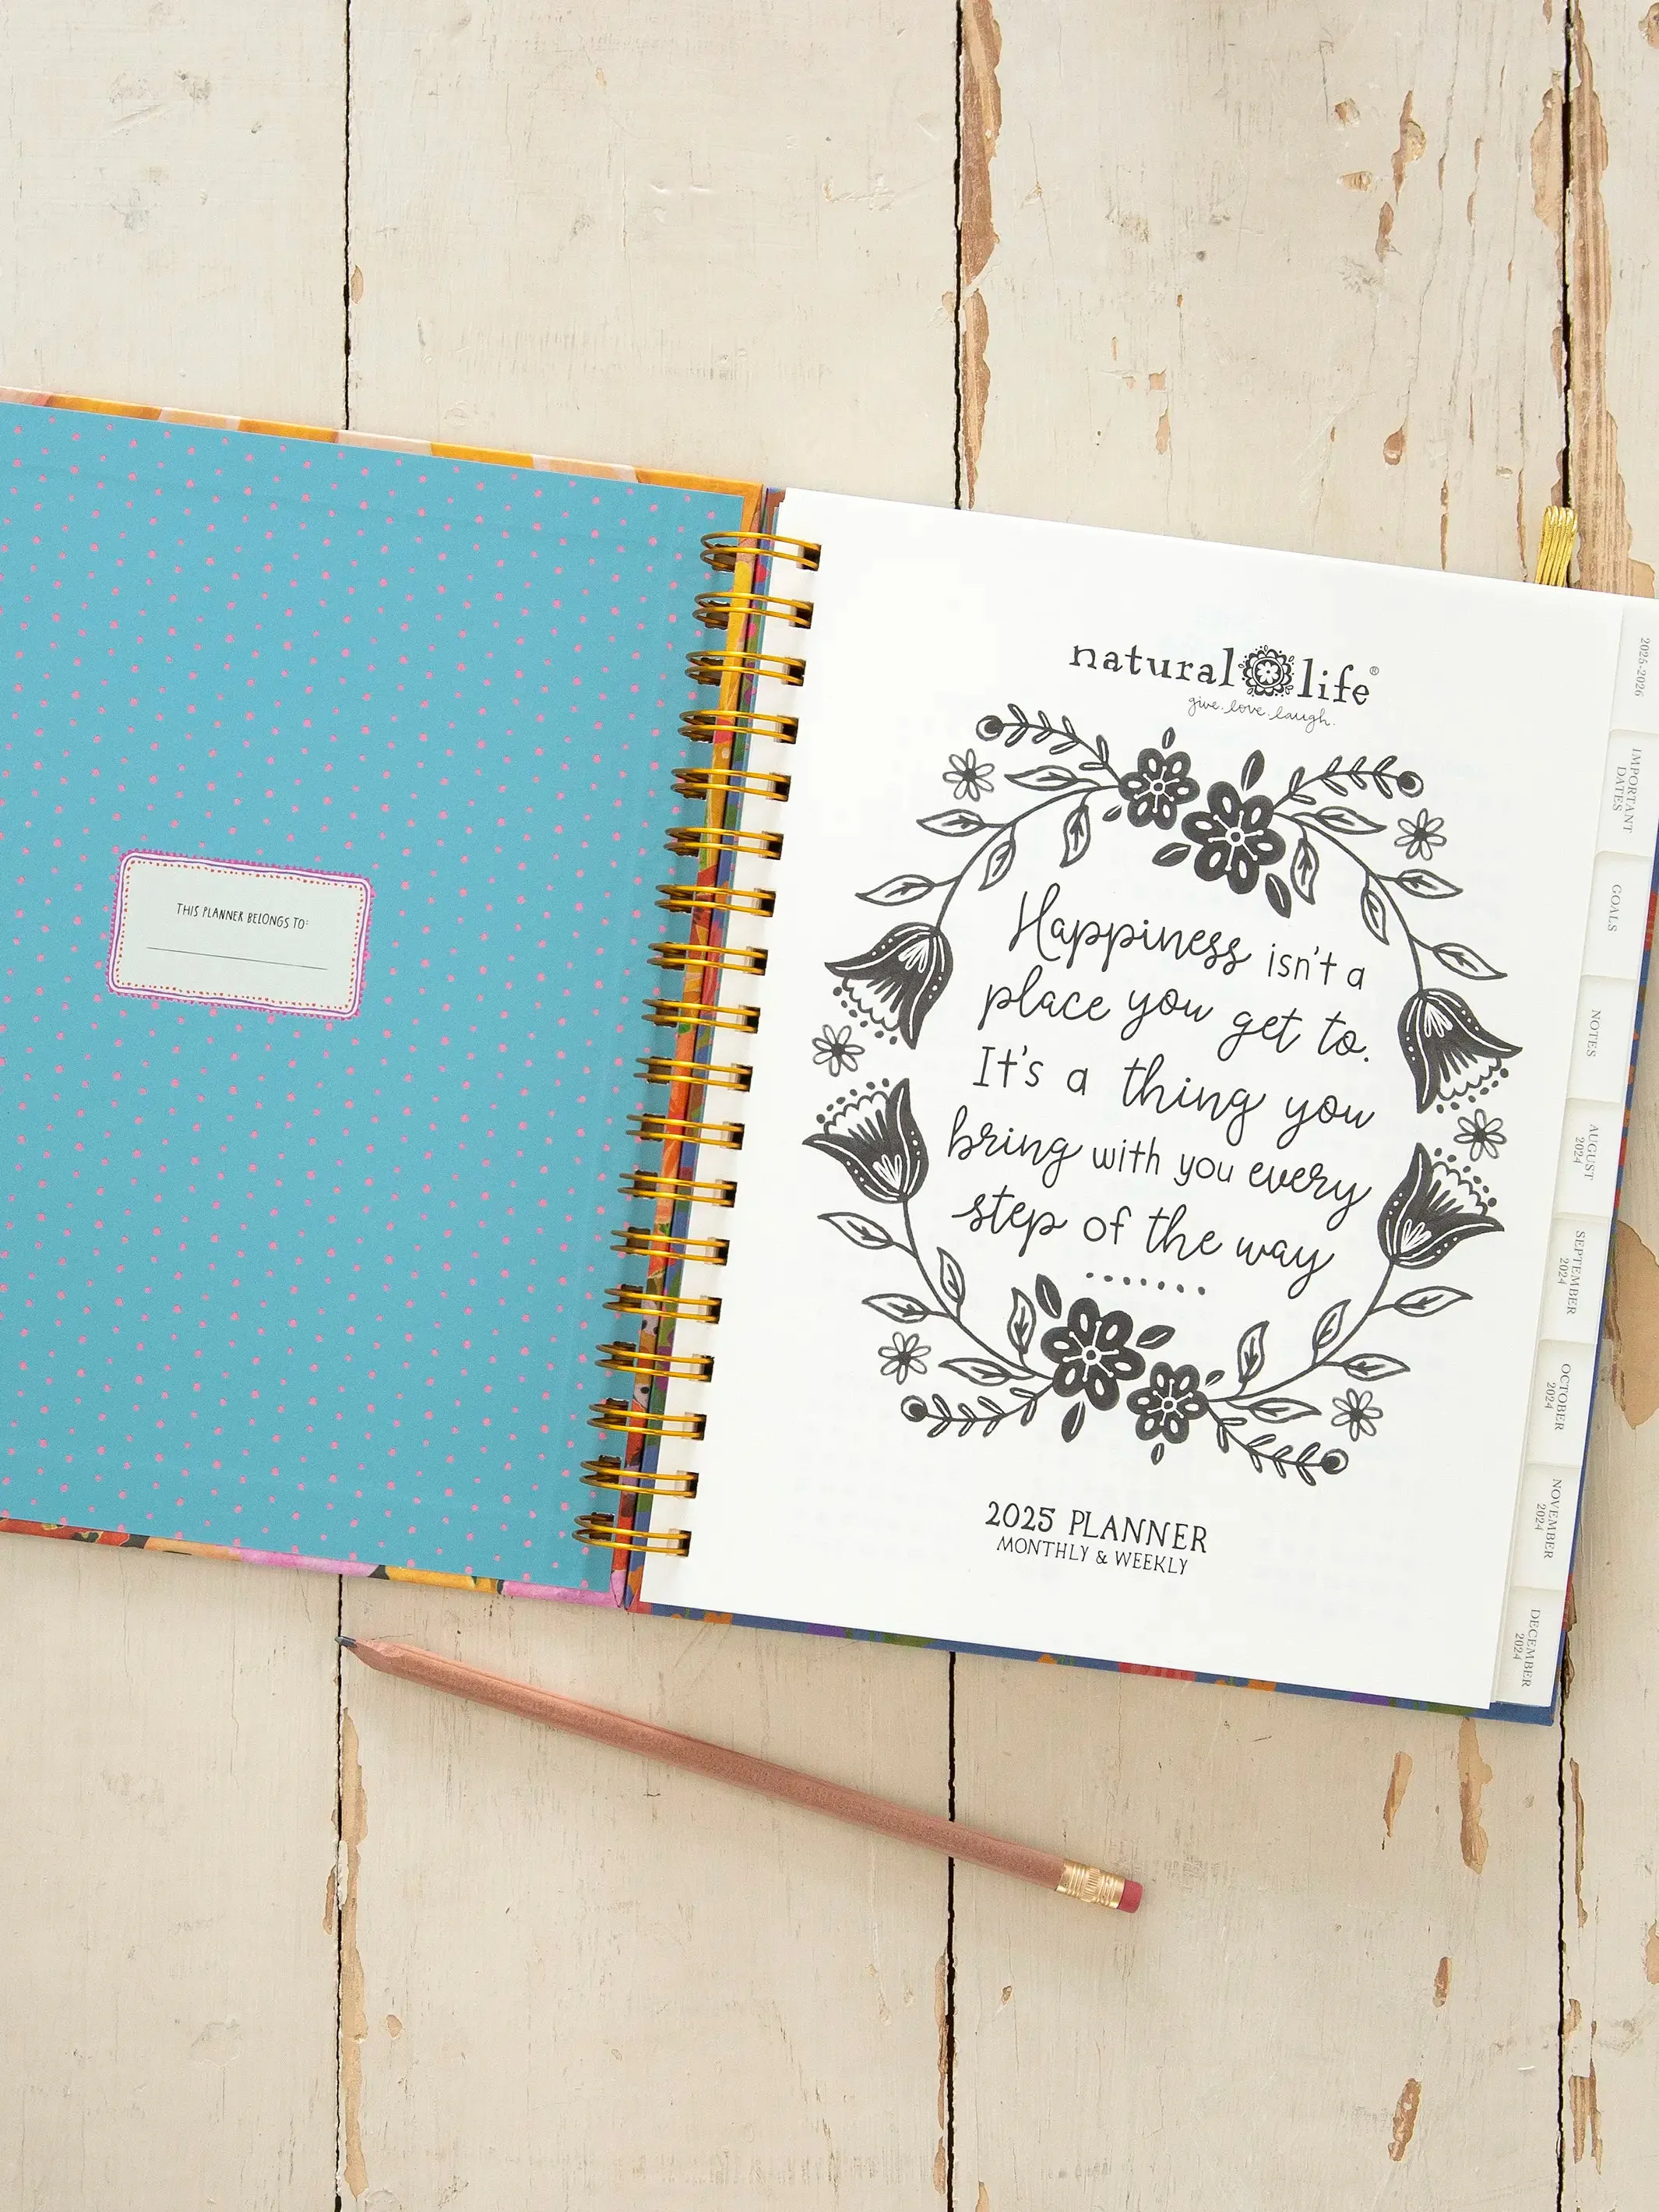 THIS PLANNER BELONGS TO:
natural life®
give. love. laugh.
Happiness isn't a
place you get to.
It's a thing you
bring with you every
step of the way
2025 PLANNER
MONTHLY & WEEKLY
2025-2026
IMPORTANT
DATES
GOALS
NOTES
AUGUST
2024
SEPTEMBER
2024
OCTOBER
2024
NOVEMBER
2024
DECEMBER
2024